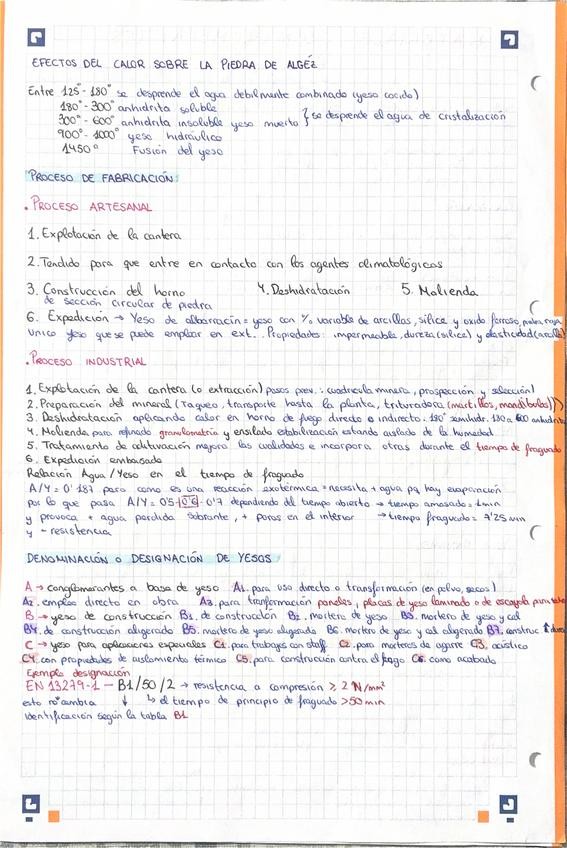 EFECTOS DEL CALOR SOBRE LA PIEDRA DE ALGÉZ
Entre 125°-180° se desprende el agua debilmente combinado (yeso cocido)
180°-300° anhidrita soluble
300°-600° anhidrita insoluble yeso muerto } se desprende el agua de cristalización
900°-1000° yeso hidráulico
1450° Fusión del yeso
PROCESO DE FABRICACIÓN:
• PROCESO ARTESANAL
1. Explotación de la cantera
2. Tendido para que entre en contacto con los agentes climatológicos
3. Construcción del horno 4. Deshidratación 5. Molienda
de sección circular de piedra
6. Expedición → Yeso de albarracín = yeso con % variable de arcillas, sílice y oxido ferroso,
único yeso que se puede emplear en ext. Propiedades: impermeable, dureza (sílice) y elasticidad (arcilla)
• PROCESO INDUSTRIAL
1. Explotación de la cantera (o extracción) pasos prev.: cuadrícula minera, prospección y selección)
2. Preparación del mineral (Taqueo, transporte hasta la planta, trituradora (martillos, mandíbulas))
3. Deshidratación aplicando calor en horno de fuego directo o indirecto: 180° semihidr. 180 a 600 anhidrita
4. Molienda para refinado granulometría y ensilado estabilización estando aislado de la humedad
5. Tratamiento de aditivación mejora las cualidades e incorpora otras durante el tiempo de fraguado
6. Expedición embolsado
Relación Agua/Yeso en el tiempo de fraguado
A/Y = 0'187 pero como es una reacción exotérmica = necesita + agua pq hay evaporación
por lo que pasa A/Y = 0'5-0'6-0'7 dependiendo del tiempo abierto → tiempo amasado = 1min
y provoca + agua perdida sobrante, + poros en el interior → tiempo fraguado = 7'25 min
y - resistencia
DENOMINACIÓN o DESIGNACIÓN DE YESOS
A → conglomerantes a base de yeso A1. para uso directo o transformación (en polvo, secos)
A2. empleo directo en obra A3. para tranformación paneles, placas de yeso laminado o de escayola para
B → yeso de construcción B1. de construcción B2. mortero de yeso B3. mortero de yeso y cal
B4. de construcción aligerado B5. mortero de yeso aligerado B6. mortero de yeso y cal aligerado B7. construc ↑
C → yeso para aplicaciones especiales C1. para trabajos con staff C2. para morteros de agarre C3. acústico
C4 con propiedades de aislamiento térmico C5. para construcción contra el fuego C6. como acabado
Ejemplo designación
EN 13279-1 — B1/50/2 → resistencia a compresión ≥ 2 N/mm²
esto no cambia ↓ ↳ el tiempo de principio de fraguado >50 min
identificación según la tabla B1